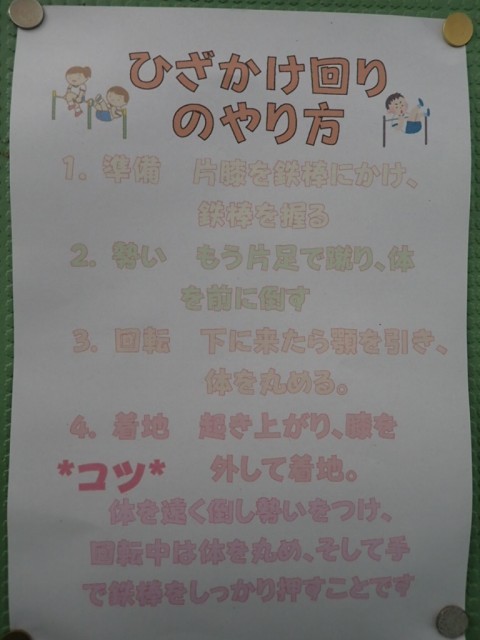 ひざかけ回り
のやり方
1. 準備 片膝を鉄棒にかけ、
鉄棒を握る
2. 勢い もう片足で蹴り、体
を前に倒す
3. 回転 下に来たら顎を引き、
体を丸める。
4. 着地 起き上がり、膝を
外して着地。
*コツ*
体を遠く倒し勢いをつけ、
回転中は体を丸め、そして手
で鉄棒をしっかり押すことです